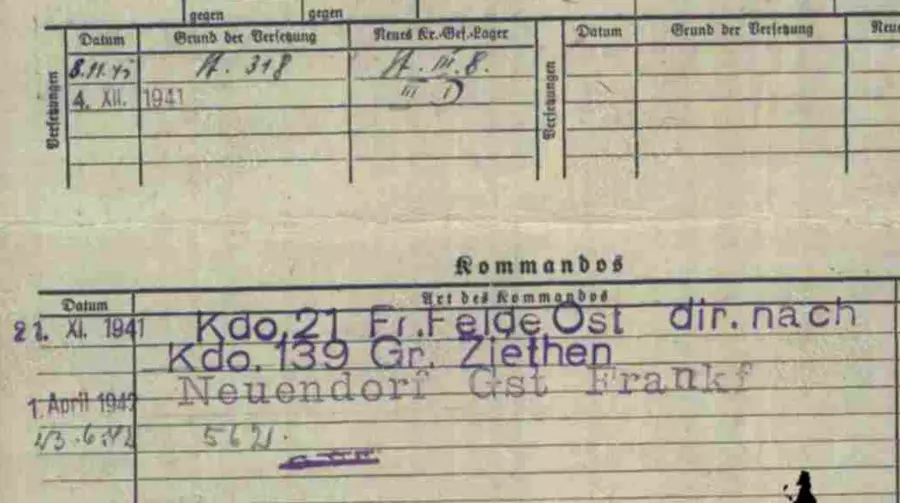 gegen gegen
Datum Grund der Versetzung Neues Kr.-Gef.-Lager Datum Grund der Versetzung Neue
8.11.41 St. 318 St. III. B.
4. XII. 1941 III D
Versetzungen Versetzungen
Kommandos
Datum Art des Kommandos
21. XI. 1941 Kdo.21 Fr.Felde Ost dir.nach
Kdo.139 Gr. Ziethen
Neuendorf Gst Frankf
1. April 1942
23.6.42